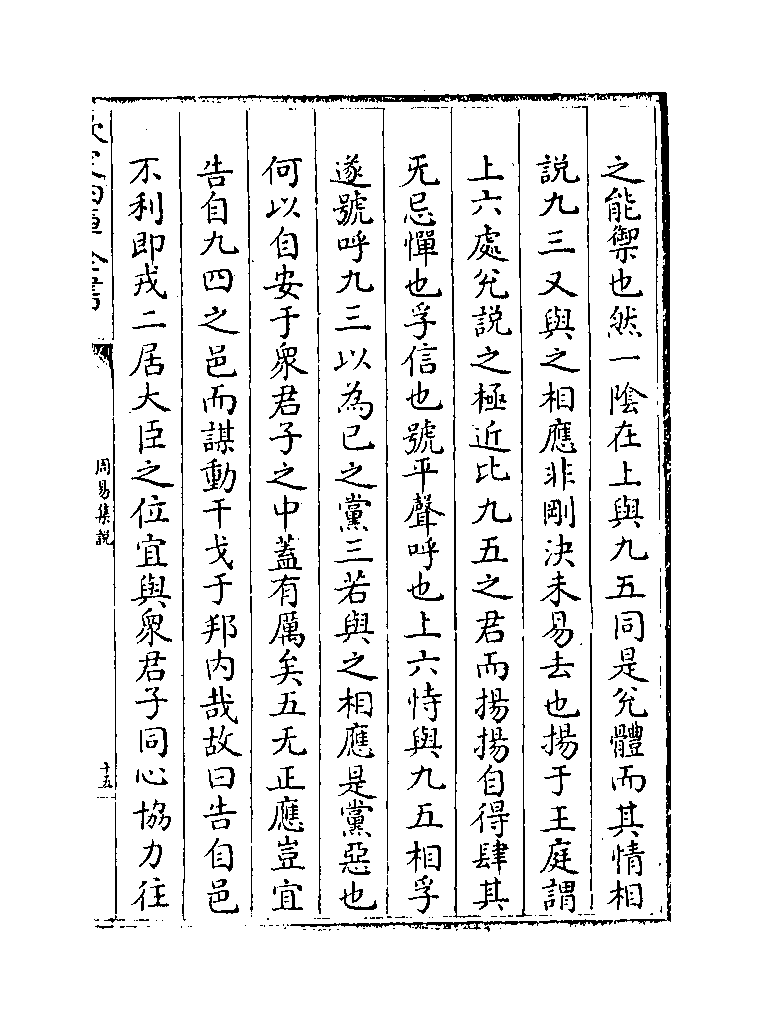 之能禦也然一隂在上與九五同是兊體而其情相
説九三又與之相應非剛決未易去也揚于王庭謂
上六處兊説之極近比九五之君而揚揚自得肆其
旡忌憚也孚信也號平聲呼也上六恃與九五相孚
遂號呼九三以為已之黨三若與之相應是黨惡也
何以自安于衆君子之中蓋有厲矣五无正應豈宜
告自九四之邑而謀動干戈于邦内哉故曰告自邑
不利即戎二居大臣之位宜與衆君子同心協力往
周易集說
十五